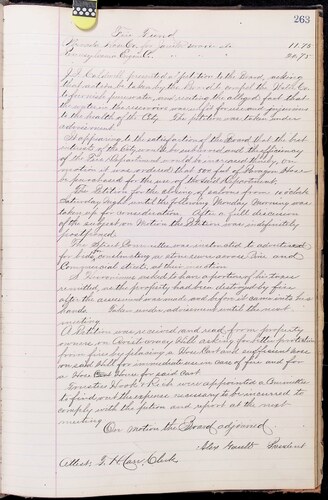 263
Fire Fund
11.75
20.75
J. R. Caldwell presented a petition to the Board, asking
that action be taken by the Board to compel the Water Co.
to furnish pure water, and reciting the alleged fact that
the water in the reservoir was unfit for use and injurious
to the health of the City. The petition was taken under
advisement.
It appearing to the satisfaction of the Board that the best
interests of the City would be served and the efficiency
of the Fire Department would be increased thereby, on
motion it was ordered that 500 feet of Paragon Hose
be purchased for the use of the said Department.
The Petition for the closing of saloons from 10 o'clock
Saturday night until the following Monday Morning was
taken up for consideration. After a full discussion
of the subject on Motion the Petition was indefinitely
postponed.
The Street Committee was instructed to advertise
for bids, constructing a stone sewer across Pine and
Commercial streets at their junction.
asked to have a portion of his taxes
remitted, as the property had been destroyed by fire
after the assessment was made, and before it came into his
hands. Taken under advisement until the next
meeting.
A Petition was received and read from property
owners, on Hill asking for better protection
from fire by placing a Hose Cart and sufficient hose
on said Hill for immediate use in case of fire and for
a Hose House for said Cart.
Trustees Hook & Rich were appointed a Committee
to find out the expense necessary to be incurred to
comply with the petition and report at the next
meeting.
On motion the Board adjourned
President
Attest: G. H. Carr, Clerk